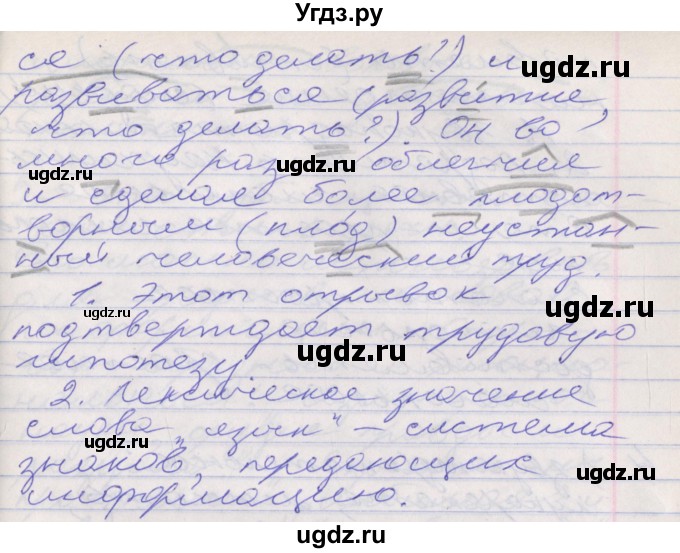 Угдз.ру
ся (что делать?) и
развиваться (развитие,
что делать?). Он во
много раз облегчил
и сделал более плодот-
ворным (плод) неустан-
ный человеческий труд.
1. Этот отрывок
подтверждает трудовую
гипотезу
2. Лексическое значение
слова „язык" – система
знаков, передающих
информацию.
ugdz.ru
ugdz.ru
ugdz.ru
ugdz.ru
ugdz.ru
ugdz.ru
ugdz.ru
ugdz.ru
ugdz.ru
ugdz.ru
ugdz.ru
ugdz.ru
ugdz.ru